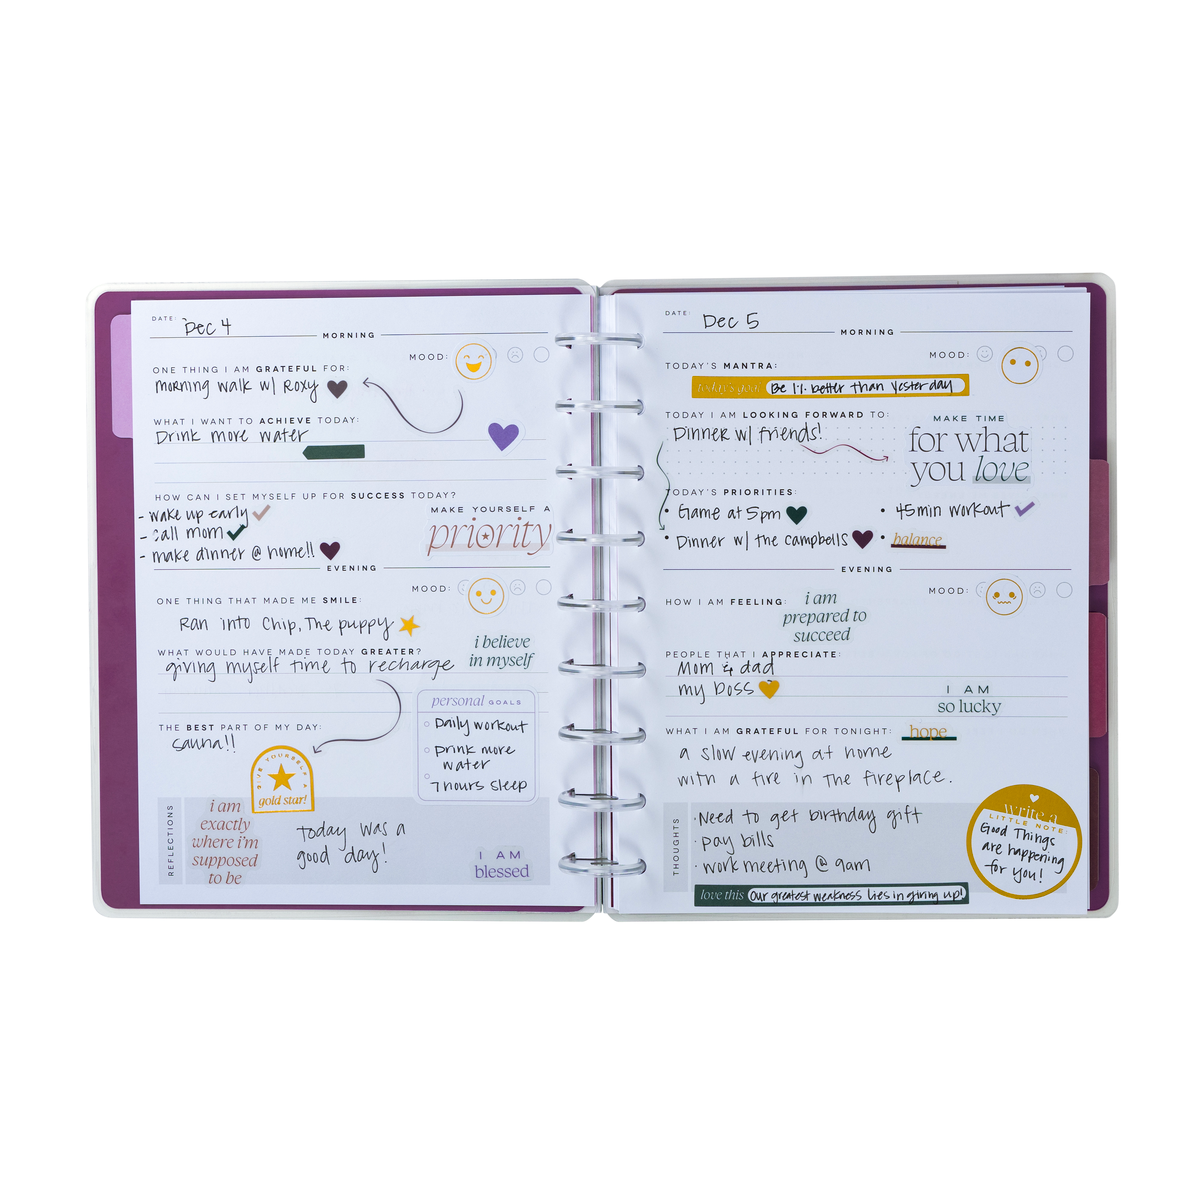 DATE: Dec 4
MORNING
MOOD:
ONE THING I AM GRATEFUL FOR:
morning walk w/ Roxy
WHAT I WANT TO ACHIEVE TODAY:
Drink more water
HOW CAN I SET MYSELF UP FOR SUCCESS TODAY?
- wake up early
- call mom
- make dinner @ home!!
MAKE YOURSELF A
priority
EVENING
MOOD:
ONE THING THAT MADE ME SMILE:
Ran into Chip, The puppy
WHAT WOULD HAVE MADE TODAY GREATER?
giving myself time to recharge
i believe
in myself
THE BEST PART OF MY DAY:
Sauna!!
personal GOALS
Daily workout
Drink more
water
7 hours sleep
GIVE YOURSELF A
gold star!
REFLECTIONS
i am
exactly
where i'm
supposed
to be
Today was a
good day!
I AM
blessed
DATE: Dec 5
MORNING
MOOD:
TODAY'S MANTRA:
today's goal Be 1% better than yesterday
TODAY I AM LOOKING FORWARD TO:
Dinner w/ friends!
MAKE TIME
for what
you love
TODAY'S PRIORITIES:
• Game at 5pm
• Dinner w/ the campbells
• 45 min workout
• balance
EVENING
MOOD:
HOW I AM FEELING:
i am
prepared to
succeed
PEOPLE THAT I APPRECIATE:
Mom & dad
my boss
I AM
so lucky
WHAT I AM GRATEFUL FOR TONIGHT:
hope
a slow evening at home
with a fire in the fireplace.
THOUGHTS
·Need to get birthday gift
·pay bills
·work meeting @ 9am
love this Our greatest weakness lies in giving up!
write a
LITTLE NOTE:
Good Things
are happening
for you!